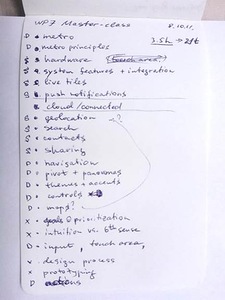 WP7 Master-class 8.10.11.
D • metro 3.5h → 21t
D • metro principles
S • hardware
S • system features + integration
S • live tiles
S • push notifications
cloud/connected
S • geolocation ?
S • search
S • contacts
S • sharing
D • navigation
D • pivot + panoramas
D • themes + accents
D • controls
D • maps?
X • goals prioritization
X • intuition vs. 6th sense
D • input, touch area,
X • design process
X prototyping
D